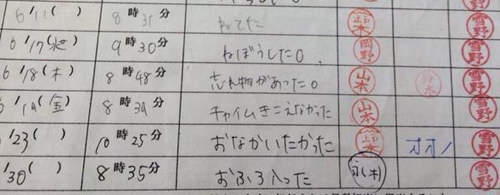 6/11( ) 8時31分 ねてた 山本 雪野
6/17(水) 9時30分 ねぼうした。 岡野 雪野
6/18(木) 8時48分 忘れ物があった。 山本 雪野
6/19(金) 8時39分 チャイムきこえなかった 山本 雪野
/23( ) 10時25分 おなかいたかった 山本 オオノ 雪野
/30( ) 8時35分 おふろ入った 雪野